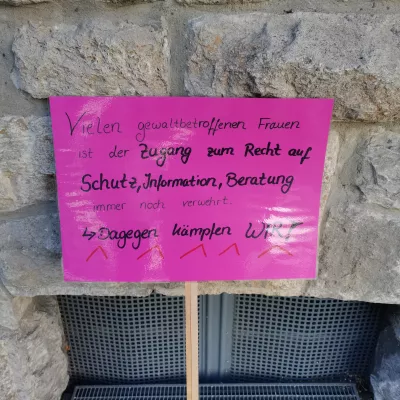 Vielen gewaltbetroffenen Frauen
ist der Zugang zum Recht auf
Schutz, Information, Beratung
immer noch verwehrt.
↳ Dagegen kämpfen WIR!